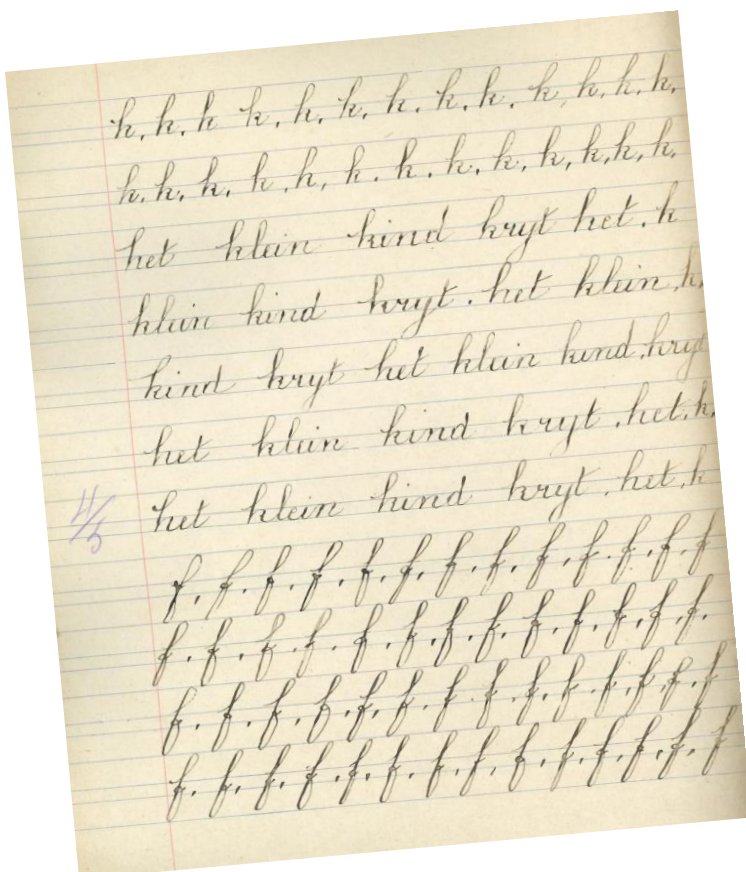 k. k. k k. k. k. k. k. k. k, k. k. k.
k. k. k. k. k. k. k. k. k. k, k. k. k.
het klein kind kryt het. k
klein kind kryt. het klein. k.
kind kryt het klein kind. kryt
het klein kind kryt. het. k.
het klein kind kryt. het. k
4/5
f. f. f. f. f. f. f. f. f. f. f. f. f
f. f. f. f. f. f. f. f. f. f. f. f. f.
f. f. f. f. f. f. f. f. f. f. f. f. f. f
f. f. f. f. f. f. f. f. f. f. f. f. f. f